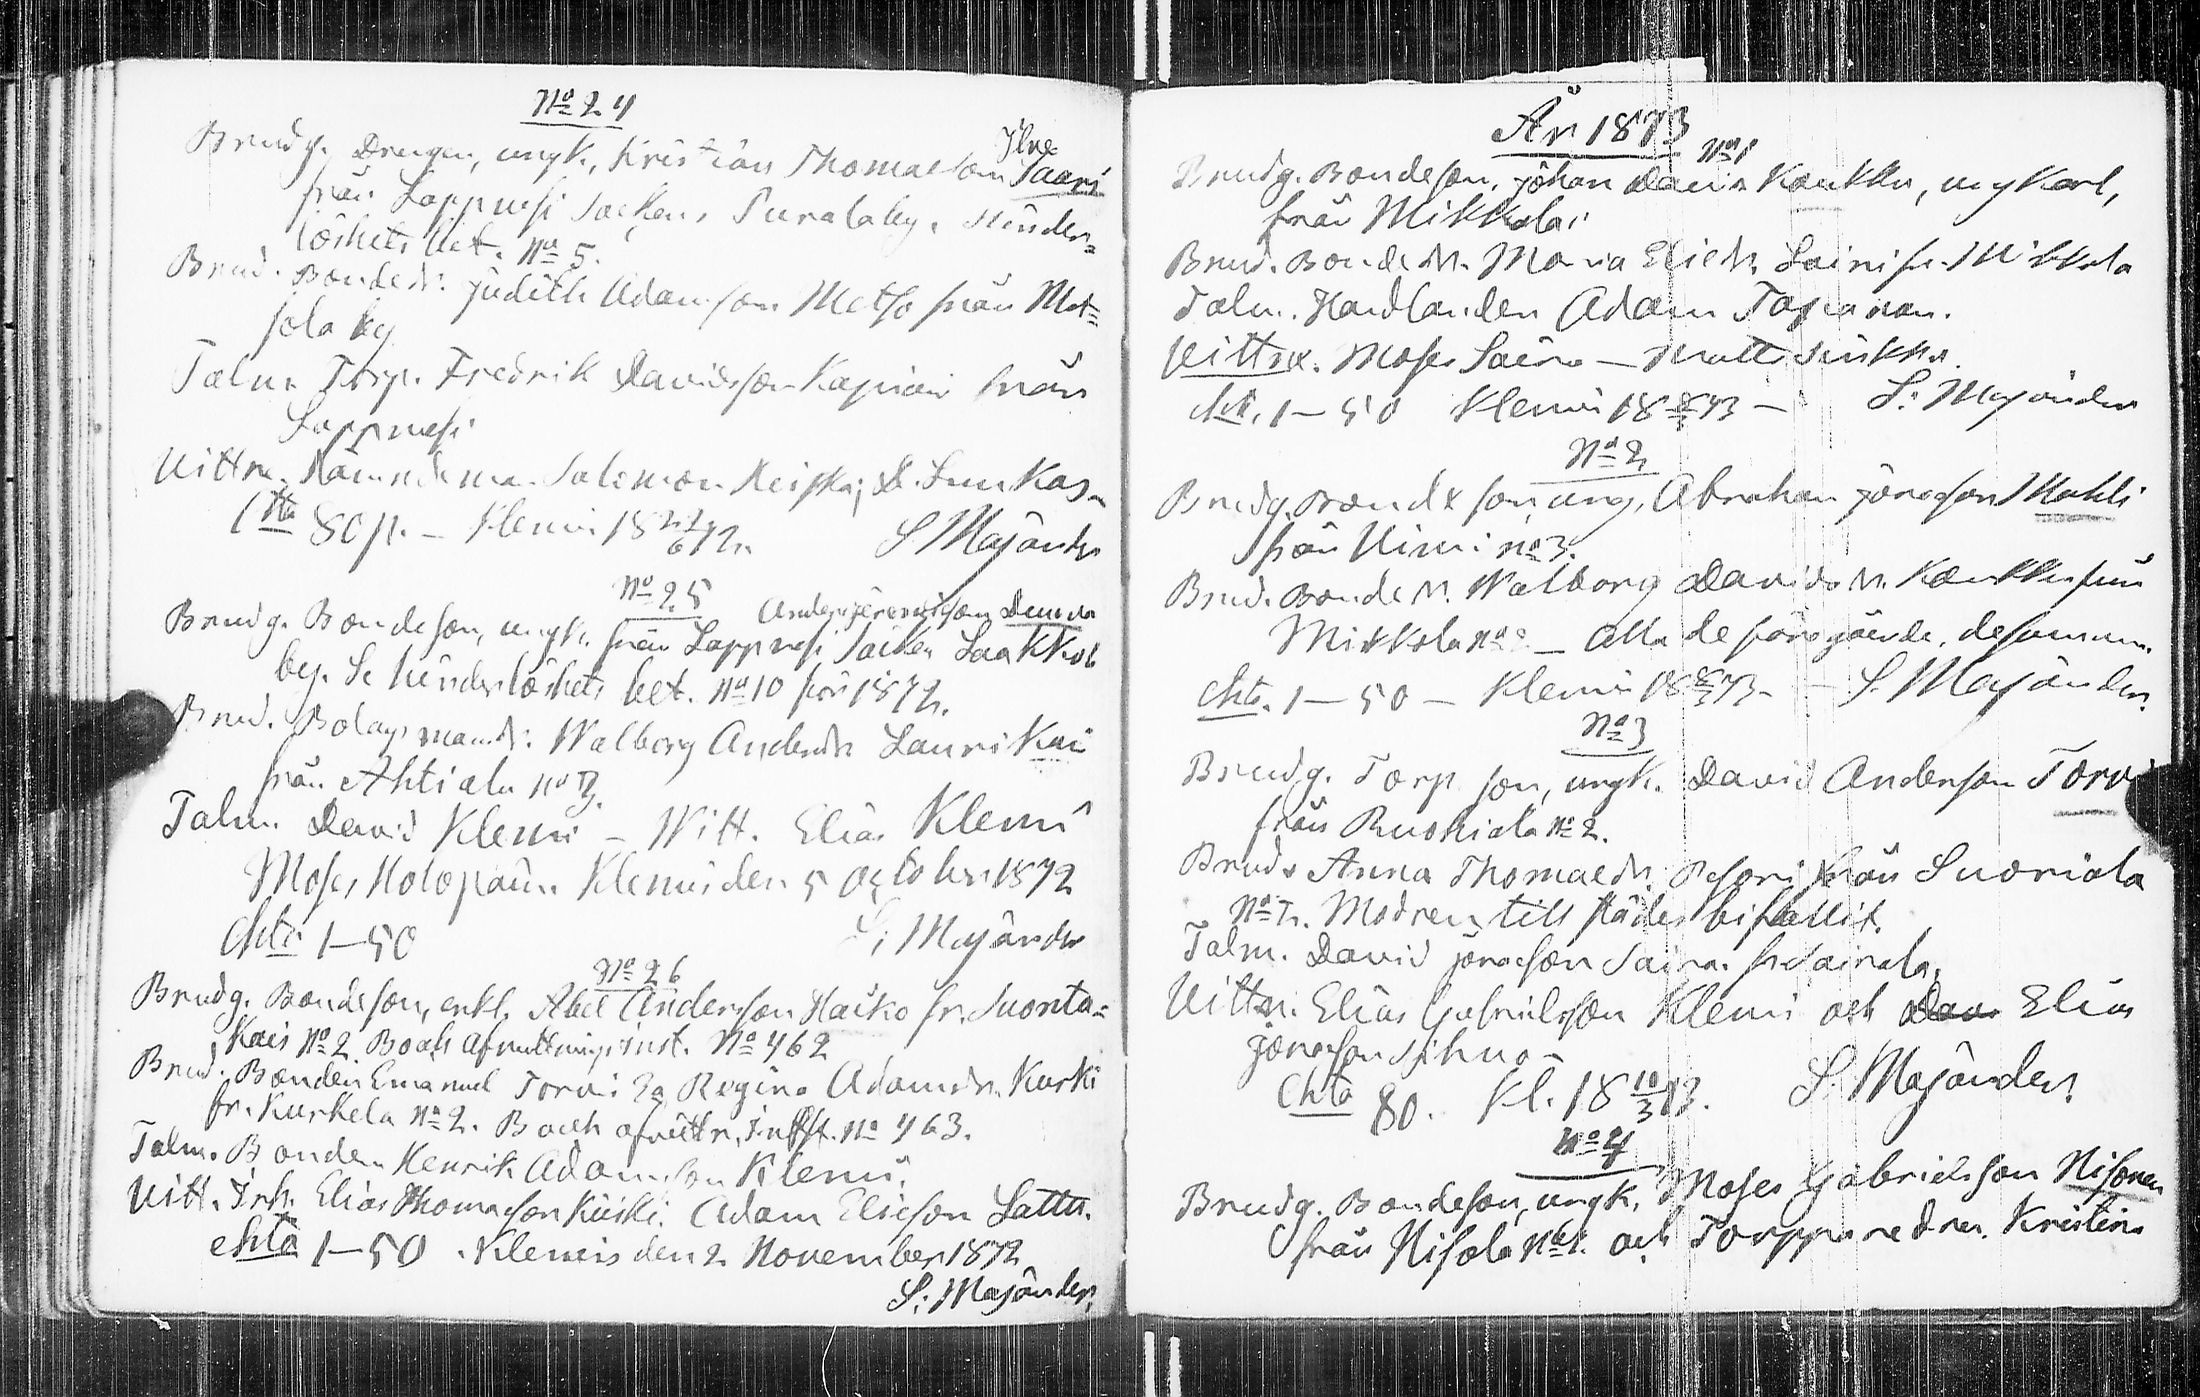 No 24
Brudg. Drengen, ungk. Kristian Thomasson Ilve
Saari
från Lappvesi Socken, Purala by. Hinder=
löshets bet. No 5.
Brud. Bonded: Judith Adamsson Metso från Met=
sola by
Talm. Torp. Fredrik Davidsson Kapiain från
Lappvesi
Vittn. Nämndeman Salomon Heiska; D. Suukas.
80 p. – Klemis 18 22/6 72. S. Majander
No 25
Brudg. Bondeson, ungk. Anders
från Lappvesi Socken Laakkol
by. Se hinderlöshets bet. No 10 för 1872.
Brud. Bolagsmansd: Walborg Andersdr Laurikai
från Ahtiala No
Talm. David Klemi – Witt. Elias Klemi
Moses Holopain. Klemis den 5 October 1872
Chta 1–50 S: Majander
No 26
Brudg. Bondeson, enkl. Abel Andersson Haiko fr. Suonta=
kais No 2. B och afvittnings inst. No 462
Brud. Bonden Emanuel Torvis Ea Regina Adamsdr. Kurki
fr. Kurkela No 2. B och afvittn. Inst. No 463.
Talm. Bonden Henrik Adamsson Klemi.
Vitt. Inh. Elias Thomasson Kiiski. Adam Eliesson Lattu.
Chta 1–50. Klemis den 2 November 1872
S: Majander,
År 1873
No 1
Brudg. Bondeson, Johan Davids Kaukku, ung Karl,
från Mikkola.
Brud. Bondedr. Maria Eliedr. Saini fr. Mikkola
Talm. Handlanden Adam Taskinen.
Vittn. Moses Saira – Matts Sinkko.
Cht. 1–50 Klemis 18 8/3 73 – S: Majander
No 2
Brudg. Bondeson, ung. Abraham Jöransson Mahli
från Vimi No 3.
Brud. Bondedr. Walborg Davidsdr. Kaukku från
Mikkola No 2 – Alla de föregående, desamma.
Chta. 1–50 – Klemis 18 8/3 73 – – S. Majander.
No 3
Brudg. Torp. son, ungk. David Andersson Torvi
från Ruohiala No 2.
Brud. Anna Thomaedr. Pesari från Suoriala
No 2. Modren till städes bifallit.
Talm. David Jöransson Saira. fr. Sairala.
Vittn. Elias Gabrielsson Klemi och Dav Elias
Jöransson Sihvo –
Chta 80. Kl. 18 10/3 73. S: Majander.
No 4
Brudg. Bondeson, ungk. Moses Gabrielsson Nisonen
från Nisola No 1. och Torpparedr. Kristina